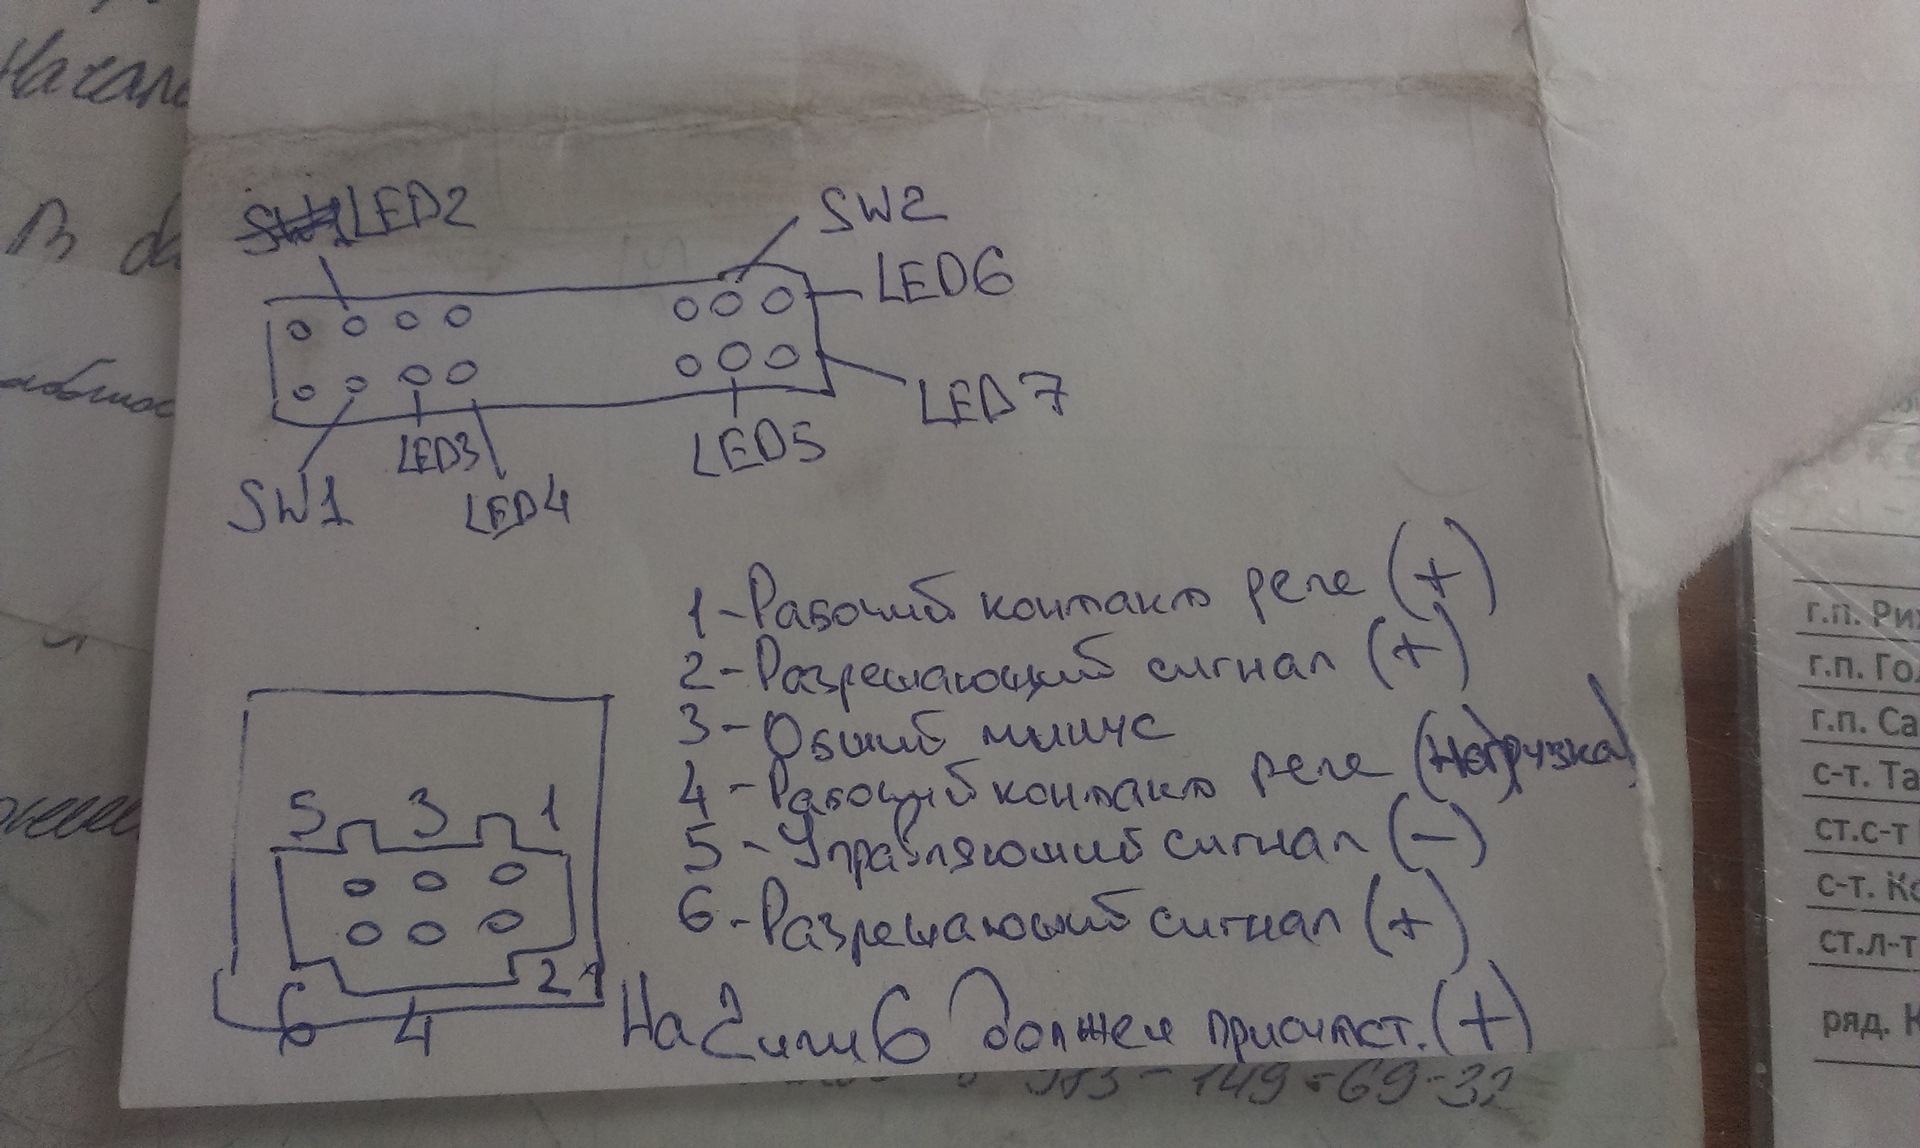 Начал
В
LED2
SW2
LED6
LED7
LED3
LED5
SW1
LED4
1-Рабочий контакт реле (+)
2-Разрешающий сигнал (+)
3-Общий минус
4-Рабочий контакт реле (Нагрузка)
5-Управляющий сигнал (-)
6-Разрешающий сигнал (+)
На 2 или 6 должен присутст. (+)
5 3 1
6 4 2
913-149-69-32
г.п. Ри
г.п. Го
г.п. Са
с-т. Та
ст.с-т
с-т. Ко
ст.л-т
ряд. К